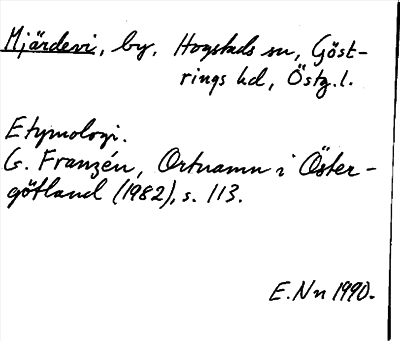 Mjärdevi, by, Hogstads sn, Göst-
rings hd, Östg.l.
Etymologi.
G. Franzén, Ortnamn i Öster-
götland (1982), s. 113.
E.Nn 1990.